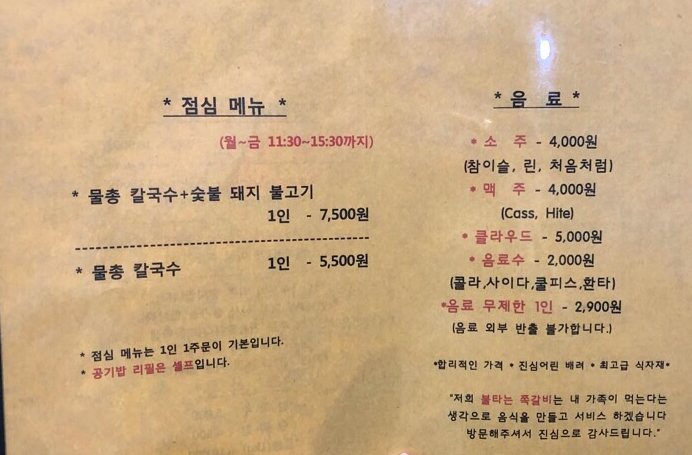 * 점심 메뉴 *
(월~금 11:30~15:30까지)
* 물총 칼국수+숯불 돼지 불고기
1인 - 7,500원
* 물총 칼국수 1인 - 5,500원
* 점심 메뉴는 1인 1주문이 기본입니다.
* 공기밥 리필은 셀프입니다.
* 음 료 *
* 소 주 - 4,000원
(참이슬, 린, 처음처럼)
* 맥 주 - 4,000원
(Cass, Hite)
* 클라우드 - 5,000원
* 음료수 - 2,000원
(콜라,사이다,쿨피스,환타)
*음료 무제한 1인 - 2,900원
(음료 외부 반출 불가합니다.)
*합리적인 가격 * 진심어린 배려 * 최고급 식자재*
"저희 불타는 쪽갈비는 내 가족이 먹는다는
생각으로 음식을 만들고 서비스 하겠습니다
방문해주셔서 진심으로 감사드립니다."